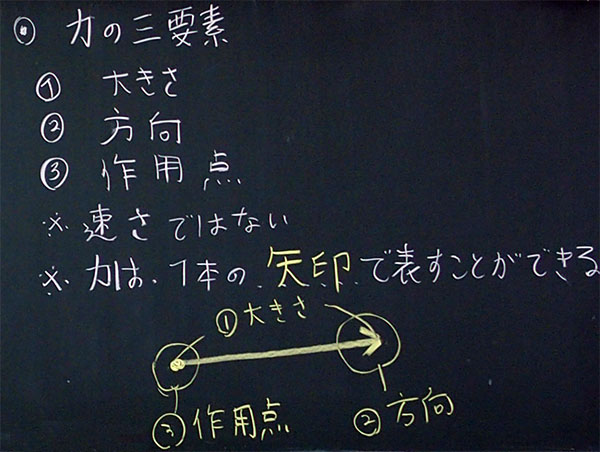 ◎ 力の三要素
① 大きさ
② 方向
③ 作用点
※ 速さではない
※ 力は、1本の、矢印で表すことができる
①大きさ
③作用点
②方向